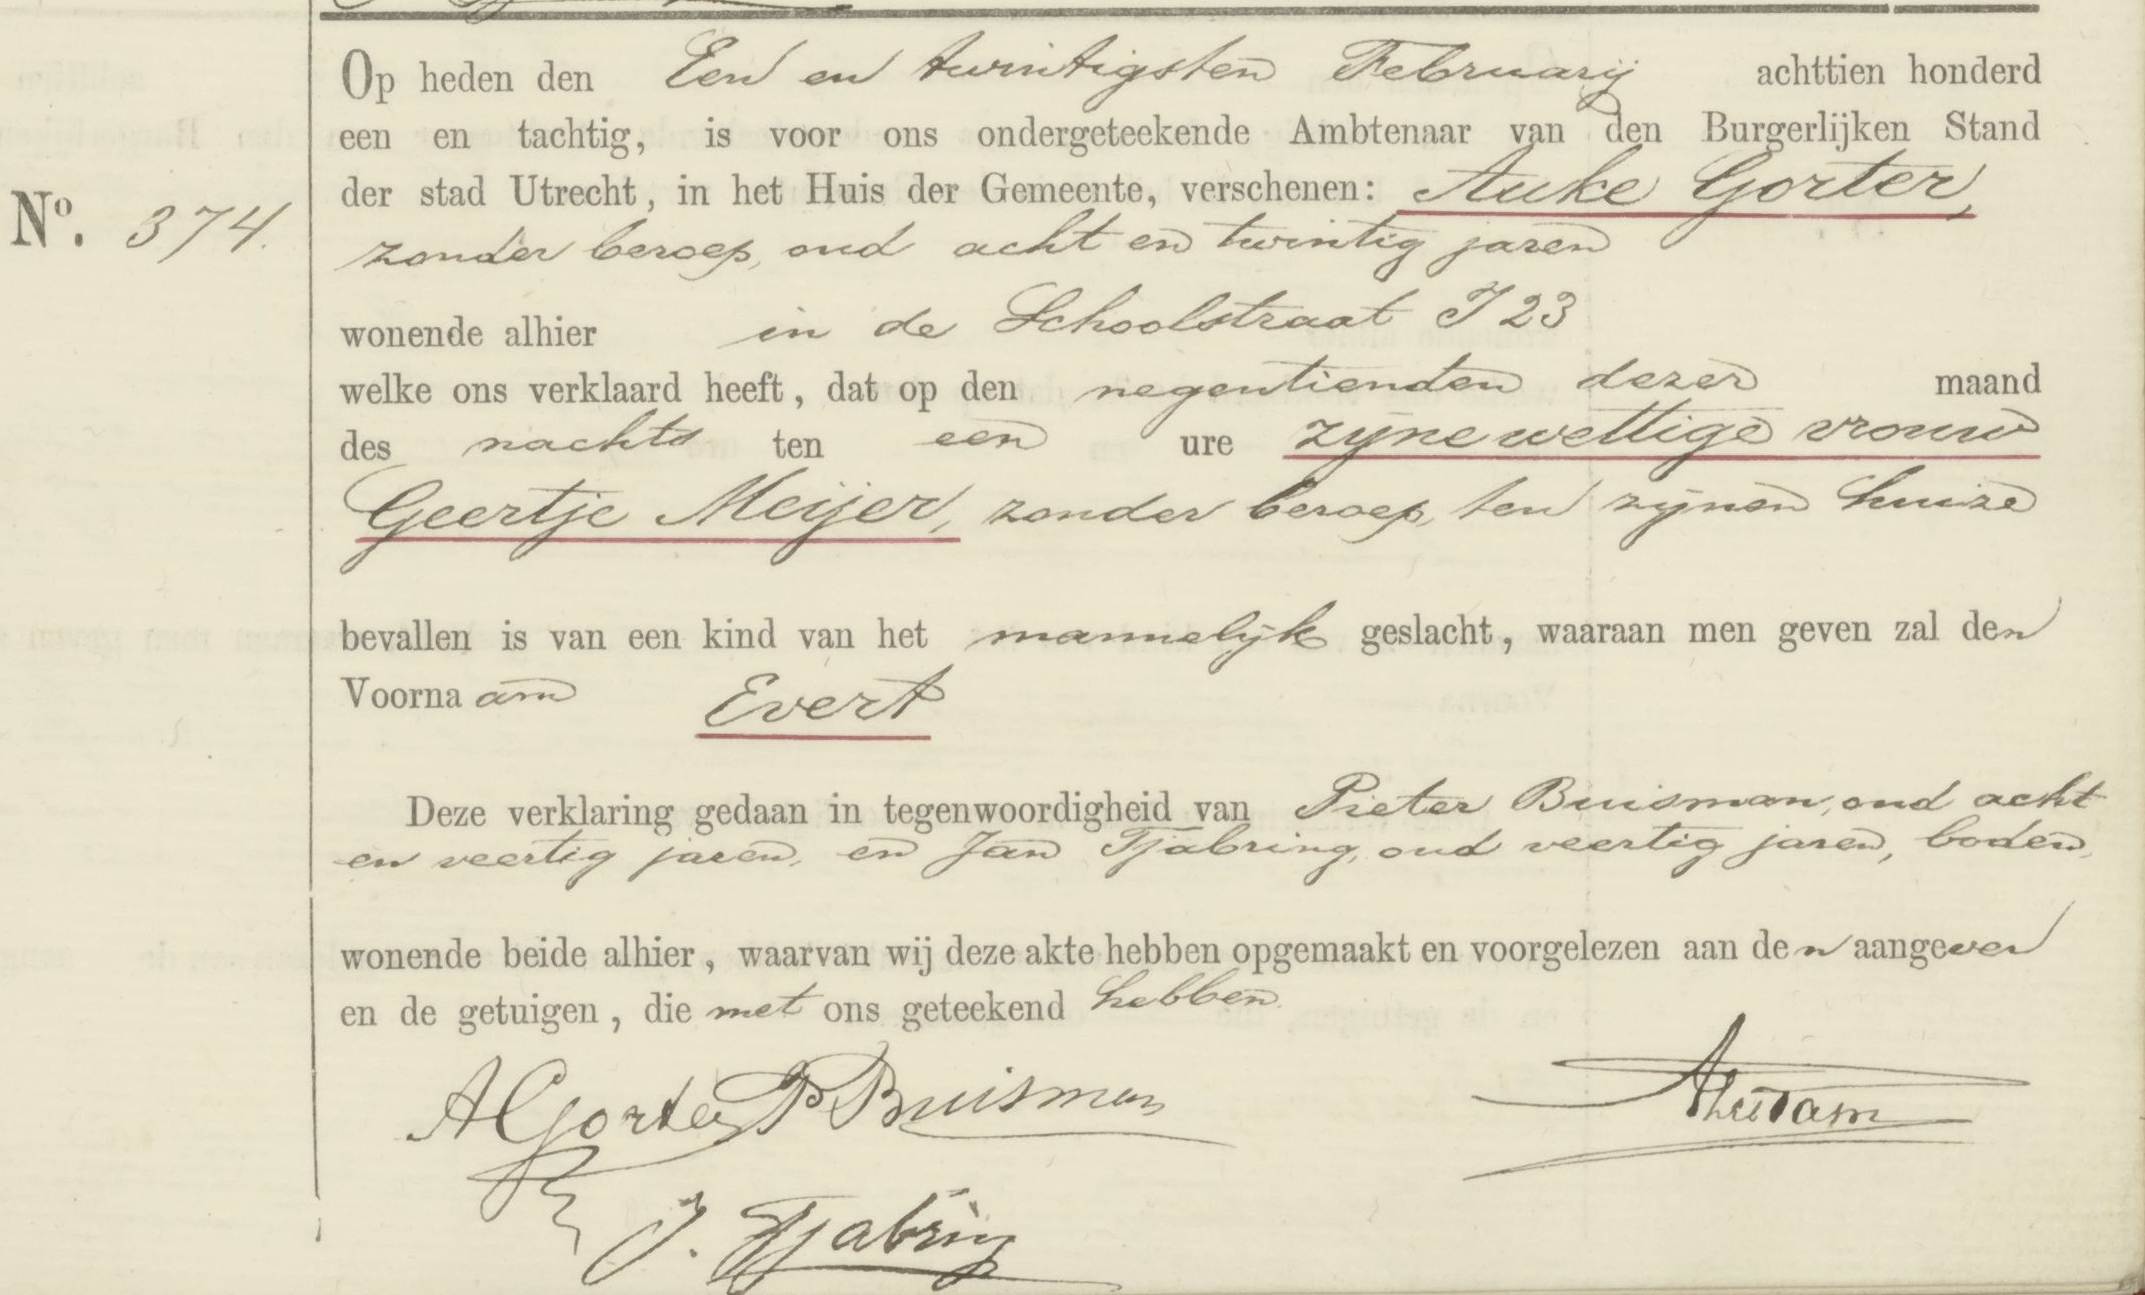 Op heden den Een en twintigsten Februarij achttien honderd
een en tachtig, is voor ons ondergeteekende Ambtenaar van den Burgerlijken Stand
der stad Utrecht, in het Huis der Gemeente, verschenen: Auke Gorter,
No. 374.
zonder beroep, oud acht en twintig jaren
wonende alhier in de Schoolstraat I 23
welke ons verklaard heeft, dat op den negentienden dezer maand
des nachts ten een ure zijne wettige vrouw
Geertje Meijer, zonder beroep, ten zijnen huize
bevallen is van een kind van het mannelijk geslacht, waaraan men geven zal den
Voornaam Evert
Deze verklaring gedaan in tegenwoordigheid van Pieter Buisman, oud acht
en veertig jaren, en Jan Tjabring, oud veertig jaren, boden,
wonende beide alhier, waarvan wij deze akte hebben opgemaakt en voorgelezen aan den aangever
en de getuigen, die met ons geteekend hebben.
A Gorter P Buisman
J. Tjabring